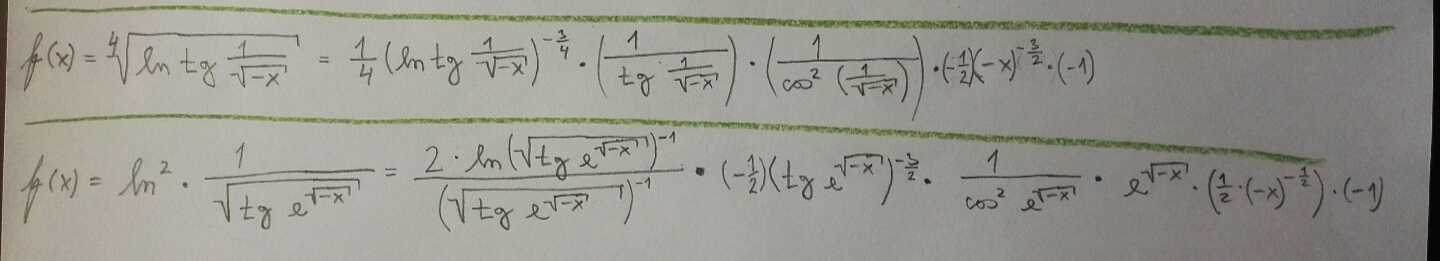 f(x) = ∜(ln tg 1/√(-x)) = 1/4 (ln tg 1/√(-x))^(-3/4) · (1/(tg 1/√(-x))) · (1/(cos² (1/√(-x)))) · (-1/2)(-x)^(-3/2) · (-1)
f(x) = ln² · 1/√(tg e^√(-x)) = (2 · ln(√(tg e^√(-x)))^(-1))/((√(tg e^√(-x)))^(-1)) · (-1/2)(tg e^√(-x))^(-3/2) · 1/(cos² e^√(-x)) · e^√(-x) · (1/2 · (-x)^(-1/2)) · (-1)